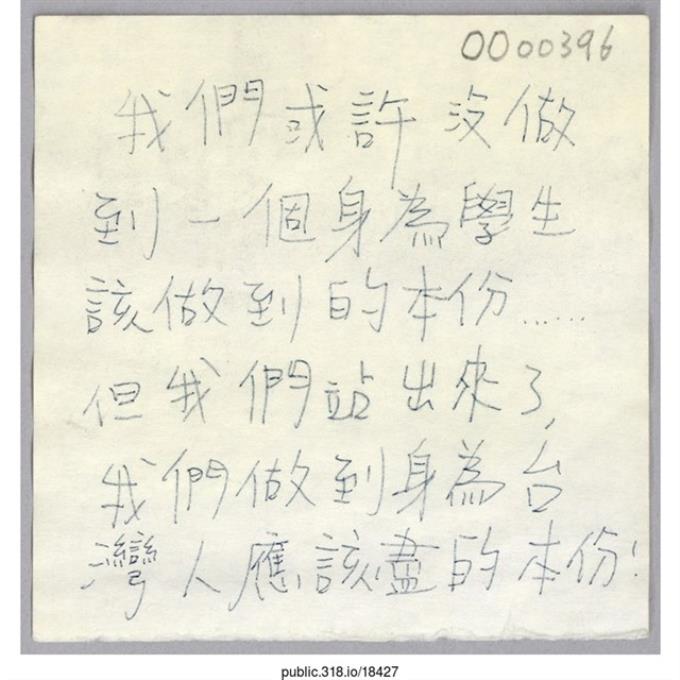 0000396
我們或許沒做
到一個身為學生
該做到的本份……
但我們站出來了,
我們做到身為台
灣人應該盡的本份!
public.318.io/18427